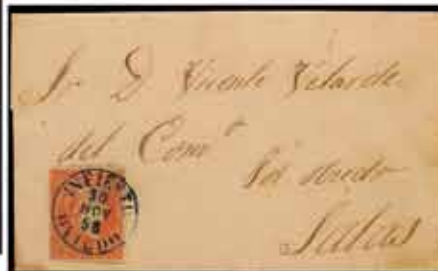 Sr D Vicente Velarde
del Comº
Salas
INFIESTO
30
NOV
58
OVIEDO